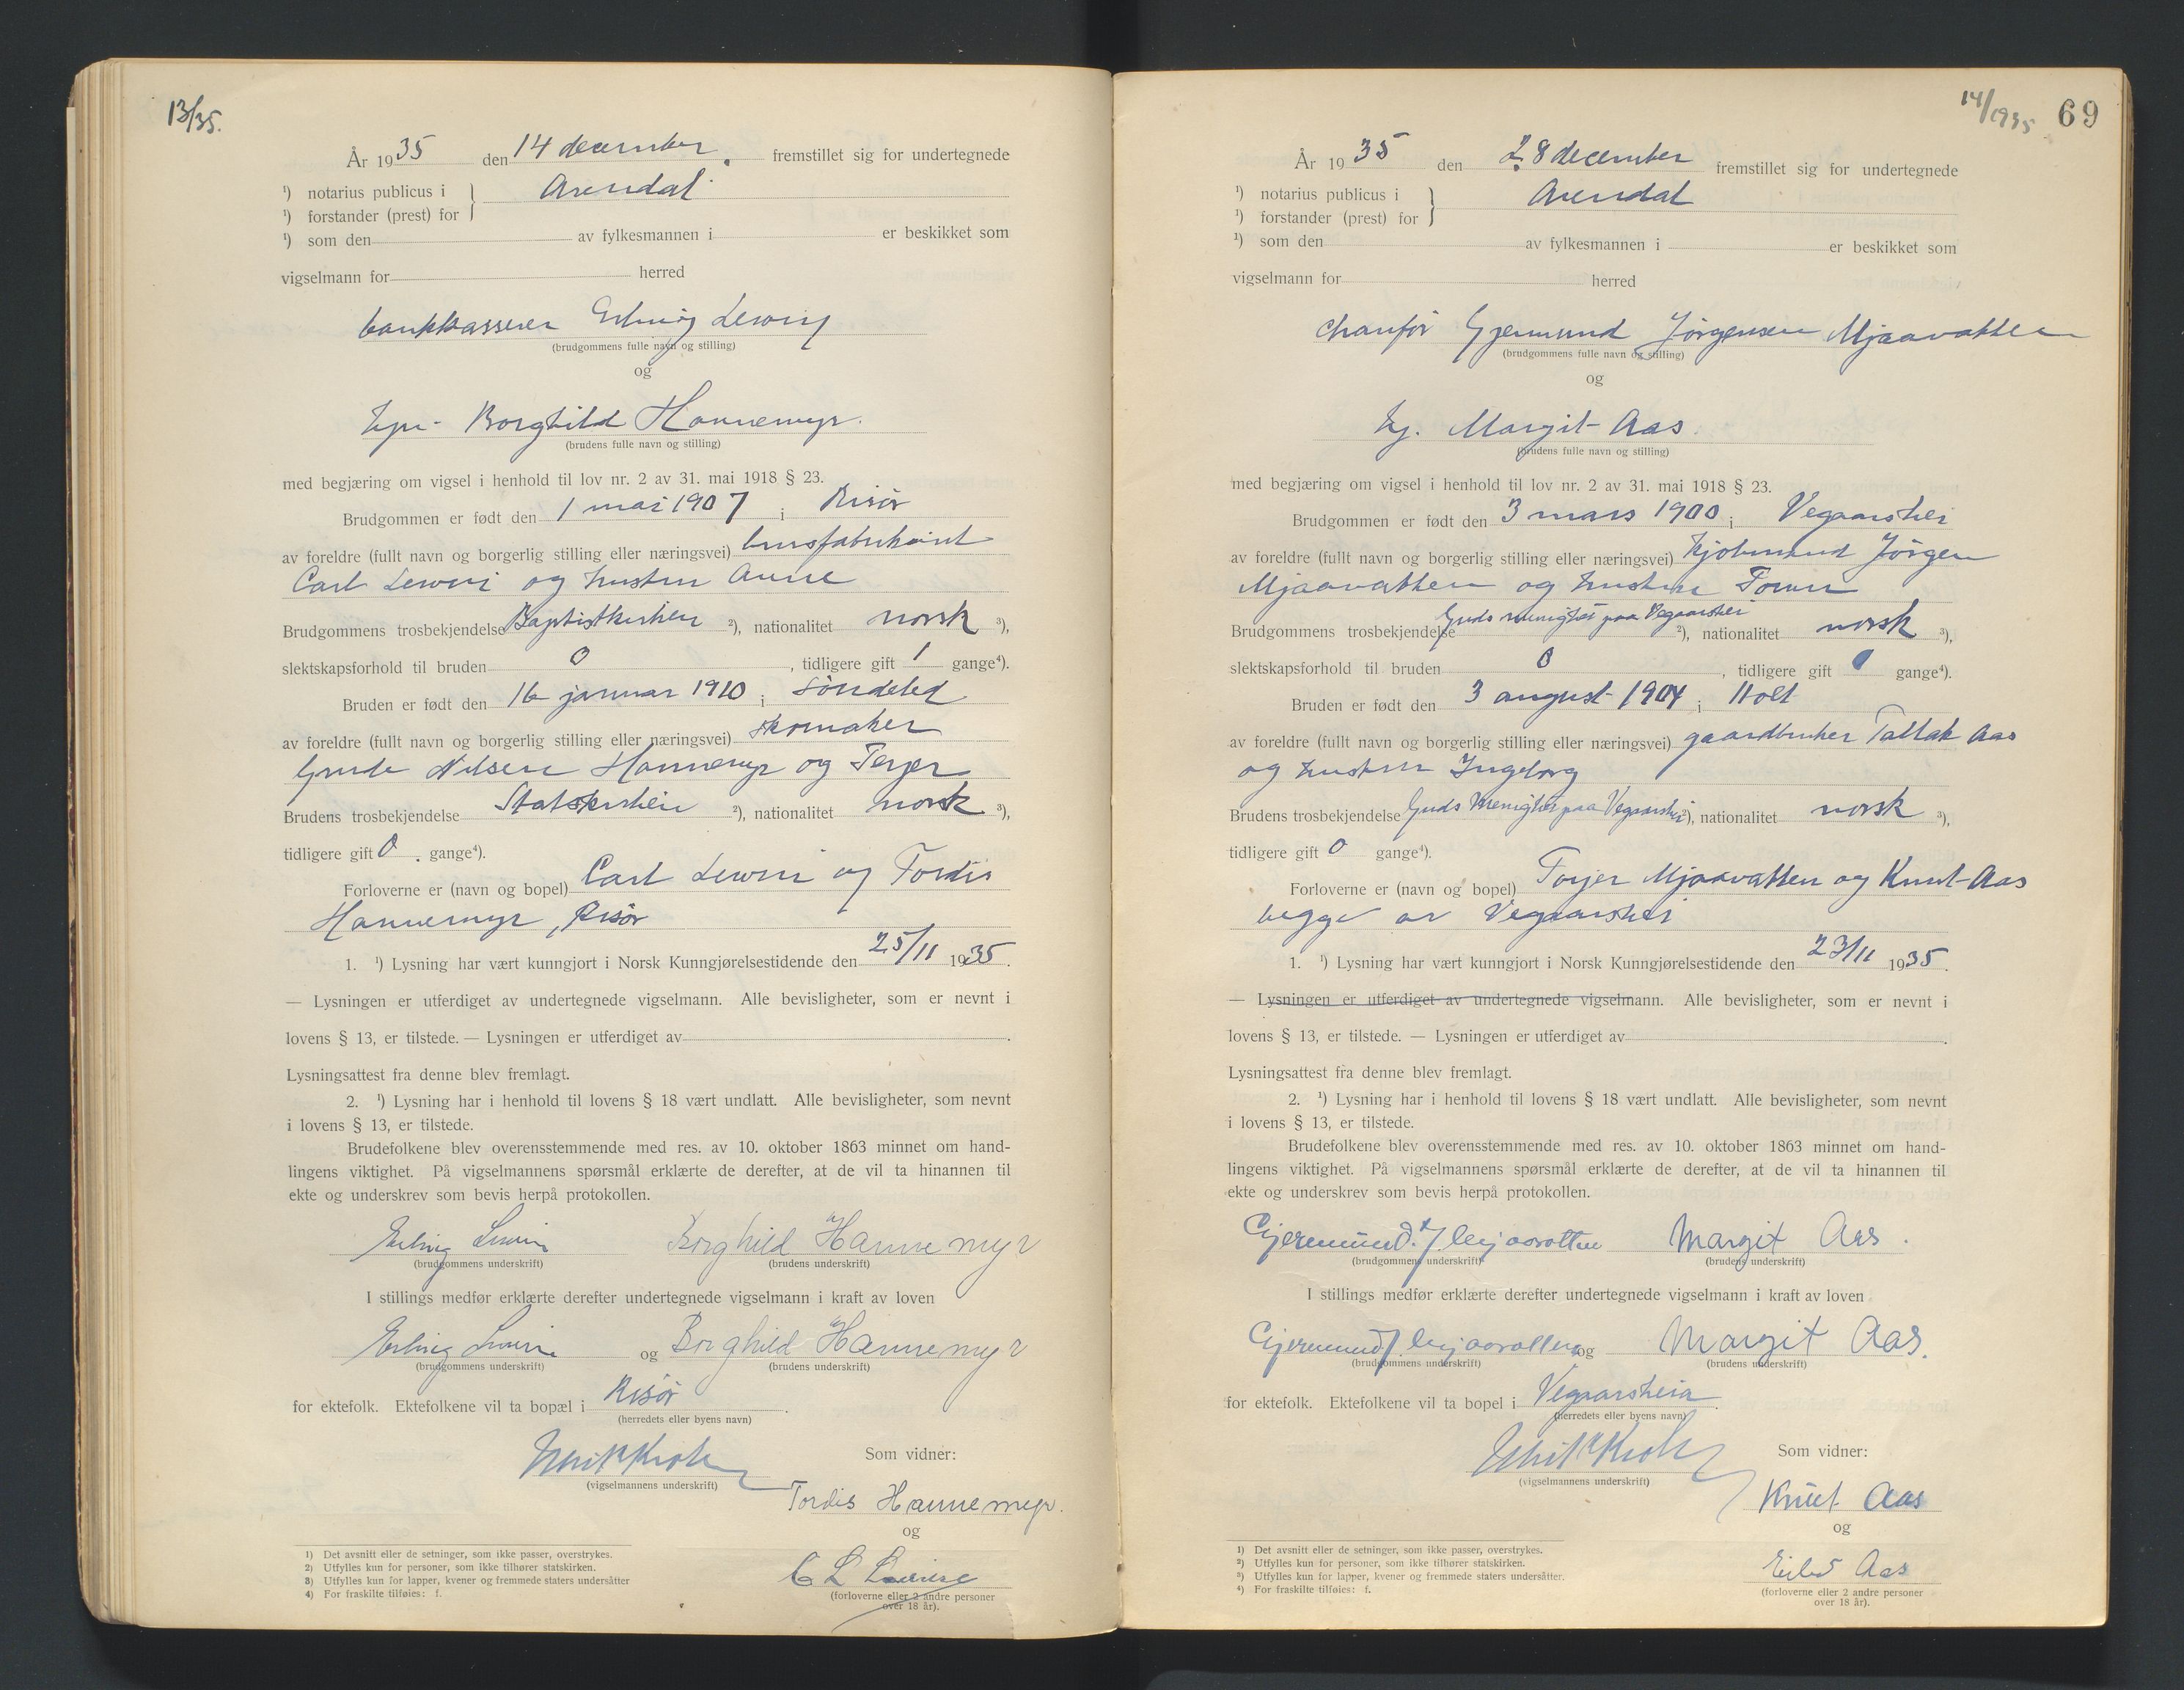 13/35.
År 1935 den 14 december. fremstillet sig for undertegnede
¹) notarius publicus i } Arendal
¹) forstander (prest) for
¹) som den av fylkesmannen i er beskikket som
vigselmann for herred
bankkasserer Erling Lewin
(brudgommens fulle navn og stilling)
og
Borghild Hannemyr.
(brudens fulle navn og stilling)
med begjæring om vigsel i henhold til lov nr. 2 av 31. mai 1918 § 23.
Brudgommen er født den 1 mai 1907 i Risør
av foreldre (fullt navn og borgerlig stilling eller næringsvei) brusfabrikant
Carl Lewin og hustru Anne
Brudgommens trosbekjendelse Baptistkirken ²), nationalitet norsk ³),
slektskapsforhold til bruden 0, tidligere gift 1 gange⁴).
Bruden er født den 16 januar 1910 i Søndeled
av foreldre (fullt navn og borgerlig stilling eller næringsvei) skomaker
Nilsen Hannemyr og
Brudens trosbekjendelse Statskirken ²), nationalitet norsk ³),
tidligere gift 0. gange⁴).
Forloverne er (navn og bopel) Carl Lewin og Tordis
Hannemyr, Risør
1. ¹) Lysning har vært kunngjort i Norsk Kunngjørelsestidende den 25/11 1935.
— Lysningen er utferdiget av undertegnede vigselmann. Alle bevisligheter, som er nevnt i
lovens § 13, er tilstede. — Lysningen er utferdiget av .
Lysningsattest fra denne blev fremlagt.
2. ¹) Lysning har i henhold til lovens § 18 vært undlatt. Alle bevisligheter, som nevnt
i lovens § 13, er tilstede.
Brudefolkene blev overensstemmende med res. av 10. oktober 1863 minnet om hand-
lingens viktighet. På vigselmannens spørsmål erklærte de derefter, at de vil ta hinannen til
ekte og underskrev som bevis herpå protokollen.
Erling Lewin Borghild Hannemyr
(brudgommens underskrift) (brudens underskrift)
I stillings medfør erklærte derefter undertegnede vigselmann i kraft av loven
Erling Lewin og Borghild Hannemyr
(brudgommens underskrift) (brudens underskrift)
for ektefolk. Ektefolkene vil ta bopæl i Risør.
(herredets eller byens navn)
Som vidner:
(vigselmannens underskrift)
Tordis Hannemyr.
og
C L Lewin
(forloverne eller 2 andre personer
over 18 år).
1) Det avsnitt eller de setninger, som ikke passer, overstrykes.
2) Utfylles kun for personer, som ikke tilhører statskirken.
3) Utfylles kun for lapper, kvener og fremmede staters undersåtter
4) For fraskilte tilføies: f.
14/1935 69
År 1935 den 28 december fremstillet sig for undertegnede
¹) notarius publicus i } Arendal
¹) forstander (prest) for
¹) som den av fylkesmannen i er beskikket som
vigselmann for herred
chaufør Gjermund Jørgensen Mjaavatten
(brudgommens fulle navn og stilling)
og
Margit Aas.
(brudens fulle navn og stilling)
med begjæring om vigsel i henhold til lov nr. 2 av 31. mai 1918 § 23.
Brudgommen er født den 3 mars 1900 i Vegaarshei
av foreldre (fullt navn og borgerlig stilling eller næringsvei) Jørgen
Mjaavatten og hustru
Brudgommens trosbekjendelse Guds menighet paa Vegaarshei ²), nationalitet norsk ³),
slektskapsforhold til bruden 0, tidligere gift 0 gange⁴).
Bruden er født den 3 august 1904 i Holt
av foreldre (fullt navn og borgerlig stilling eller næringsvei) gaardbruker Tallak Aas
og hustru Ingeborg
Brudens trosbekjendelse Guds Menighet paa Vegaarshei ²), nationalitet norsk ³),
tidligere gift 0 gange⁴).
Forloverne er (navn og bopel) Torjer Mjaavatten og Knut Aas
begge av Vegaarshei
1. ¹) Lysning har vært kunngjort i Norsk Kunngjørelsestidende den 23/11 1935.
— Lysningen er utferdiget av undertegnede vigselmann. Alle bevisligheter, som er nevnt i
lovens § 13, er tilstede. — Lysningen er utferdiget av .
Lysningsattest fra denne blev fremlagt.
2. ¹) Lysning har i henhold til lovens § 18 vært undlatt. Alle bevisligheter, som nevnt
i lovens § 13, er tilstede.
Brudefolkene blev overensstemmende med res. av 10. oktober 1863 minnet om hand-
lingens viktighet. På vigselmannens spørsmål erklærte de derefter, at de vil ta hinannen til
ekte og underskrev som bevis herpå protokollen.
Gjeremund. J. Mjaavatten Margit Aas.
(brudgommens underskrift) (brudens underskrift)
I stillings medfør erklærte derefter undertegnede vigselmann i kraft av loven
Gjeremund J. Mjaavatten og Margit Aas.
(brudgommens underskrift) (brudens underskrift)
for ektefolk. Ektefolkene vil ta bopel i Vegaarsheia.
(herredets eller byens navn)
Som vidner:
(vigselmannens underskrift)
Knut Aas
og
Aas
(forloverne eller 2 andre personer
over 18 år).
1) Det avsnitt eller de setninger, som ikke passer, overstrykes.
²) Utfylles kun for personer, som ikke tilhører statskirken.
³) Utfylles kun for lapper, kvener og fremmede staters undersåtter.
⁴) For fraskilte tilføies: f.